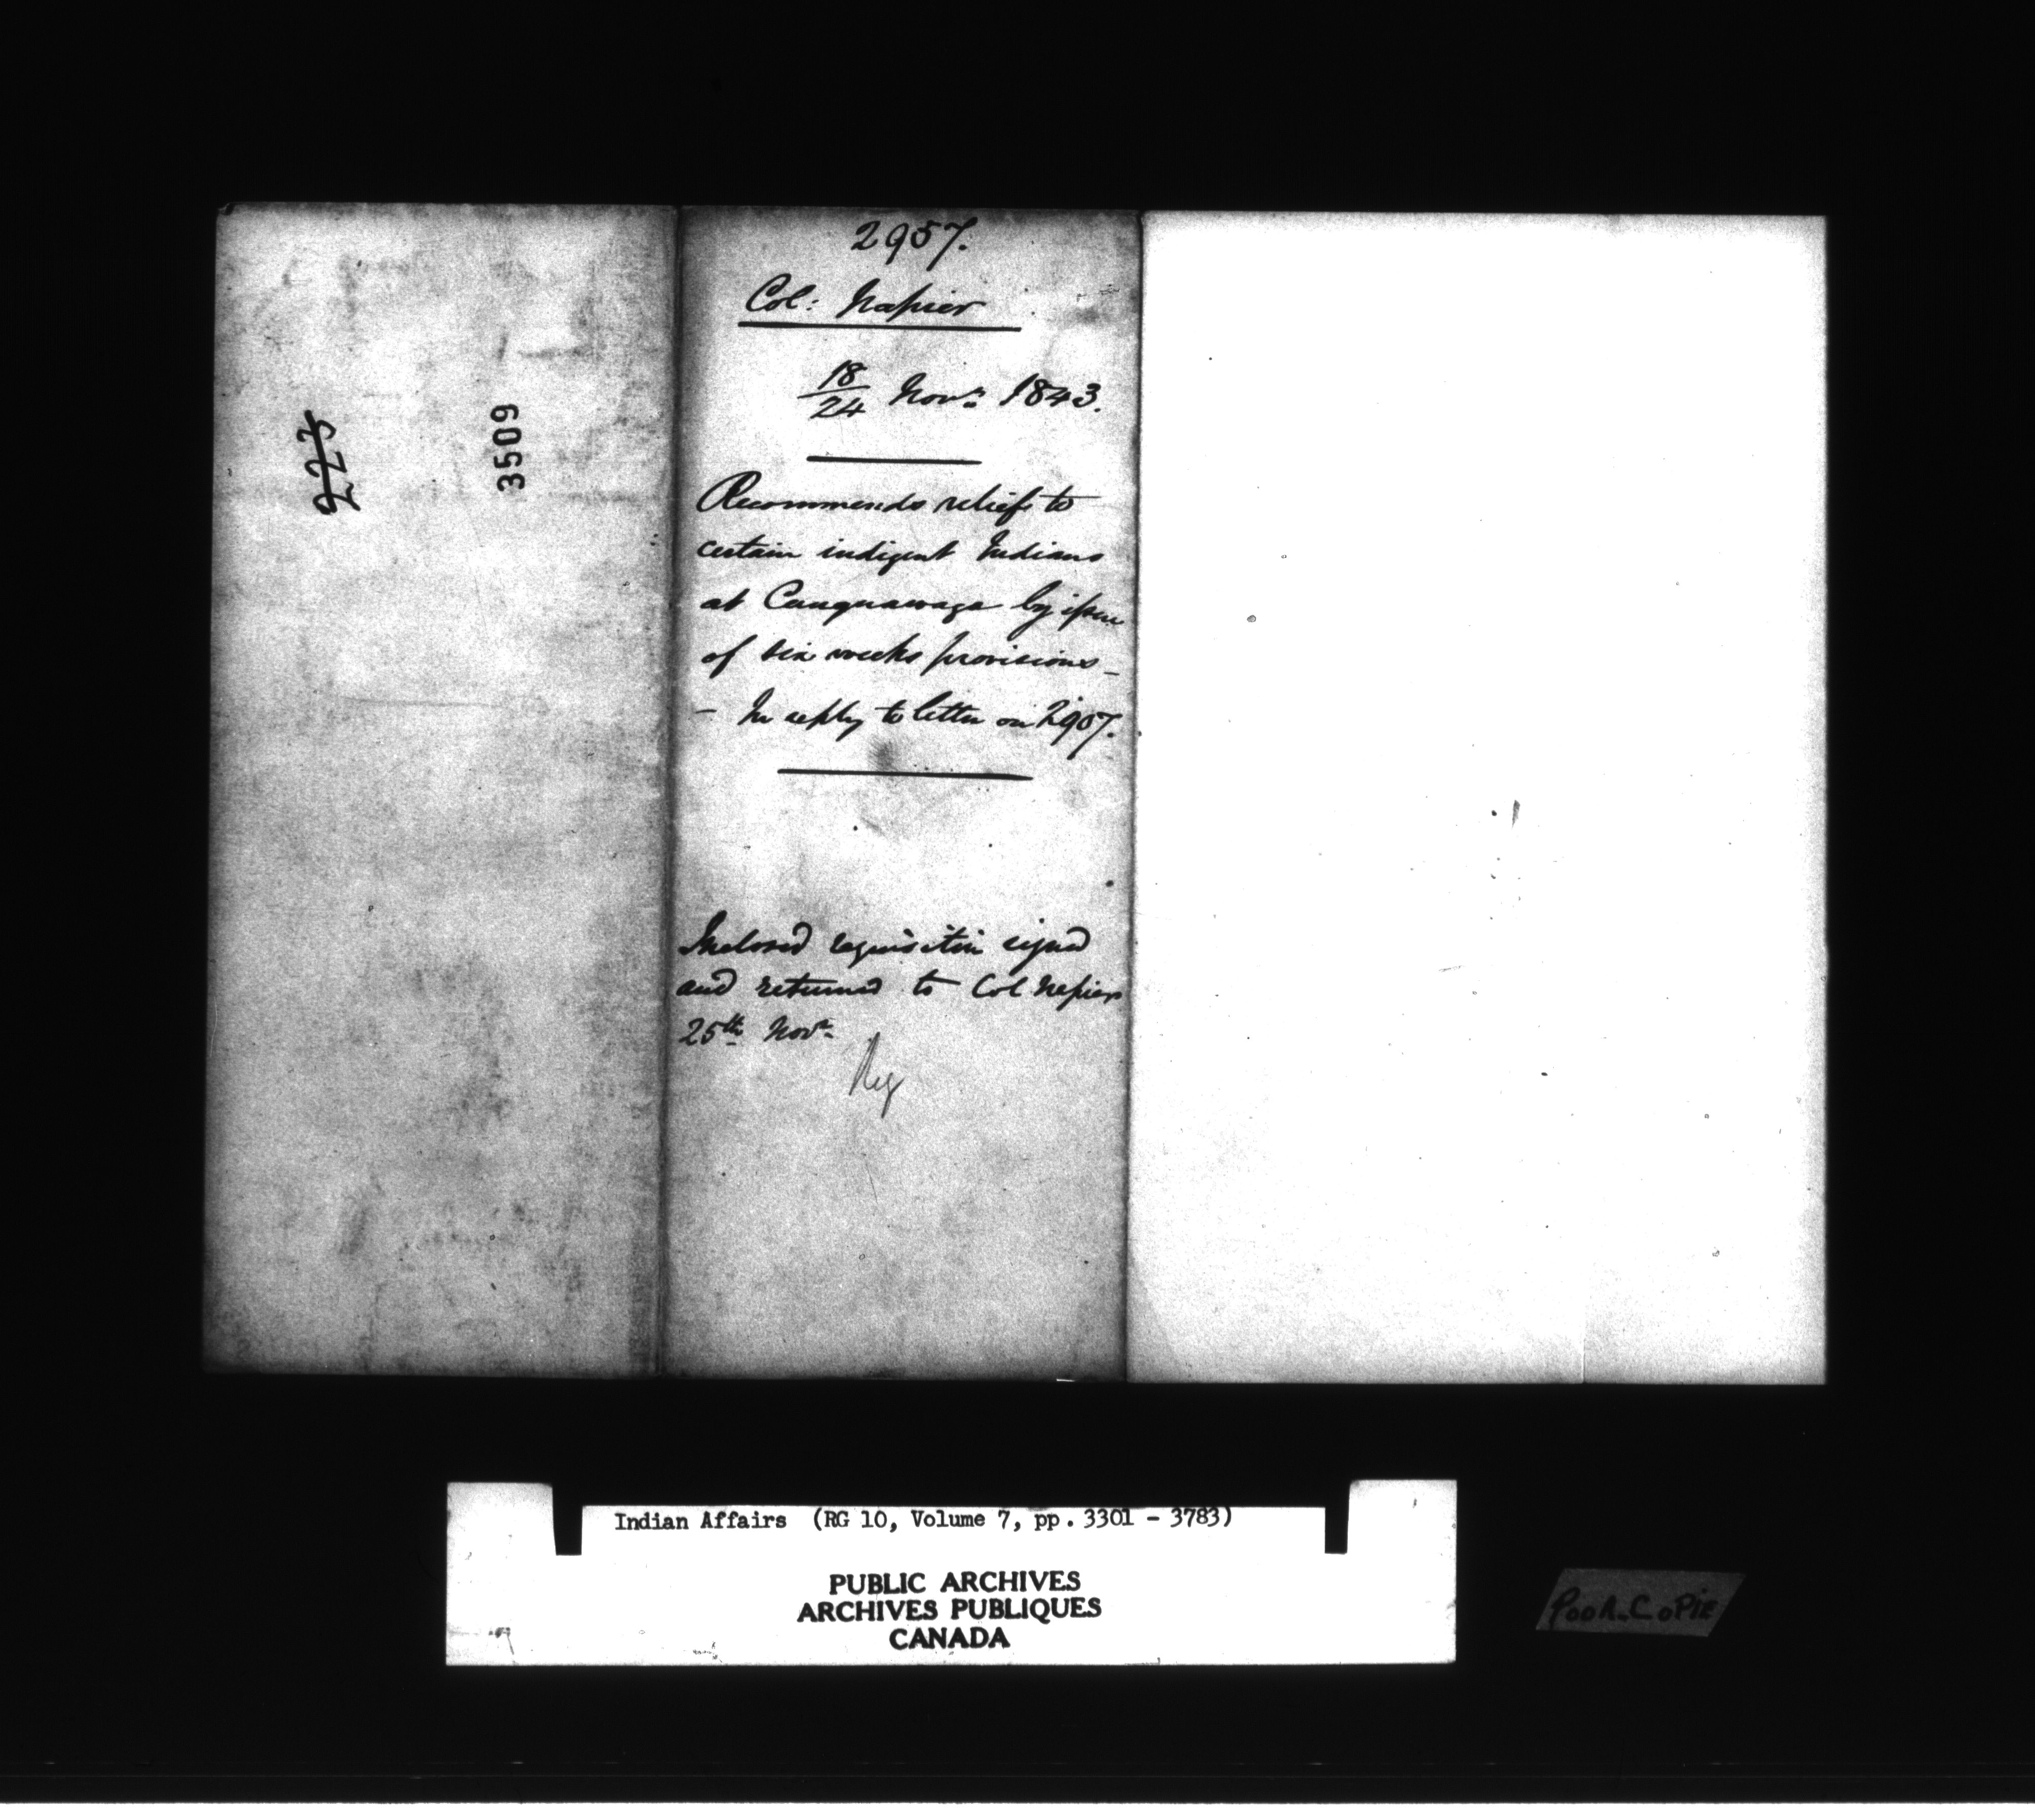 223
3509
2957.
Col: Napier
18/24 Novr. 1843.
Recommends relief to
certain indigent Indians
at Caughnawaga by issue
of six weeks provisions –
– In reply to letter on 2907.
Inclosed requisition signed
and returned to Col Napier
25th Novr.
Indian Affairs (RG 10, Volume 7, pp. 3301 - 3783)
PUBLIC ARCHIVES
ARCHIVES PUBLIQUES
CANADA
POOR COPIE